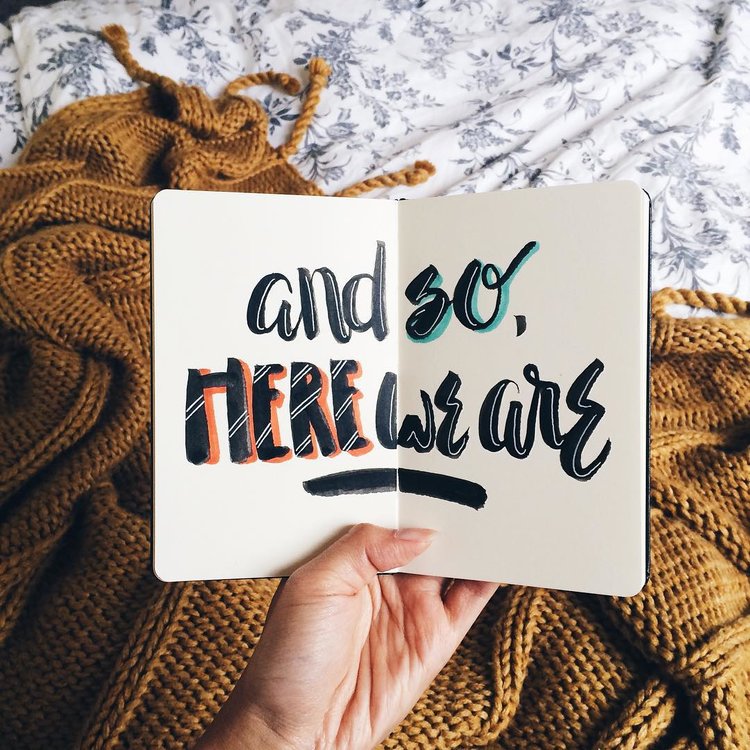 and so,
HERE we are